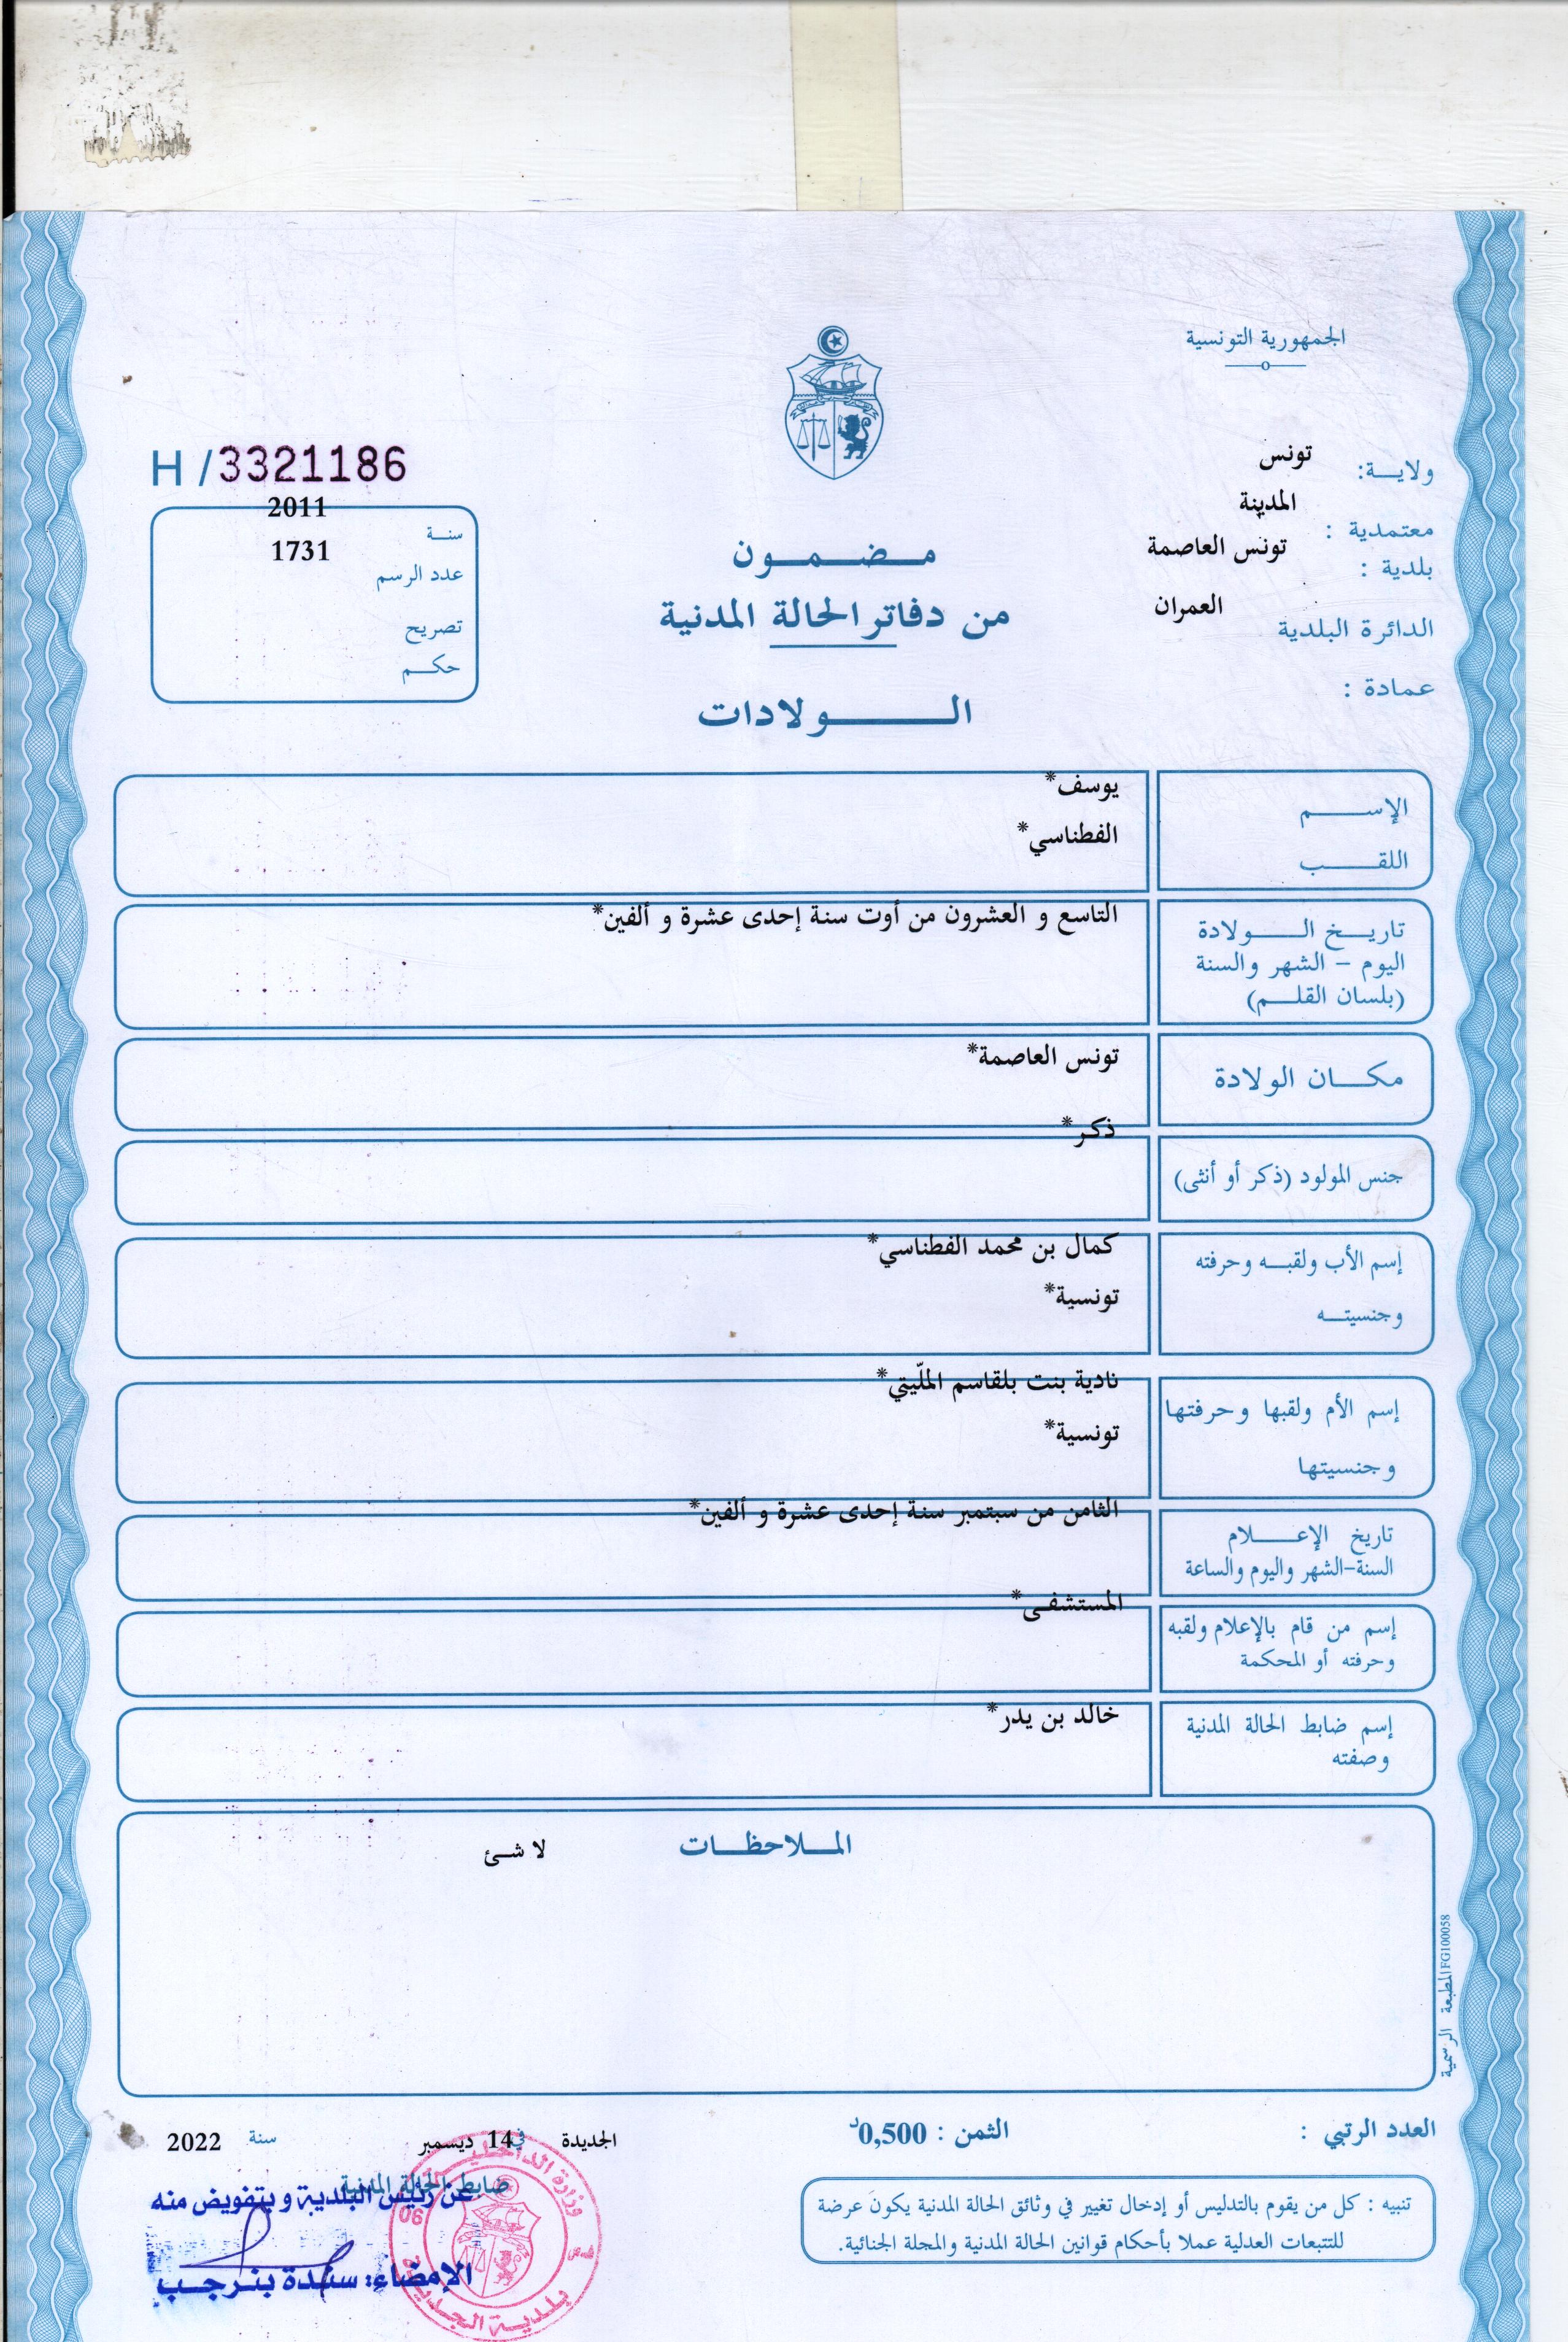 الجمهورية التونسية
ولايــة: تونس
معتمدية : المدينة
بلدية : تونس العاصمة
الدائرة البلدية العمران
عمادة :
مـضـمـون
من دفاتر الحالة المدنية
الـولادات
H /3321186
2011
سنـة
1731
عدد الرسم
تصريح
حكـم
الإسـم يوسف*
اللقـب الفطناسي*
تاريـخ الـولادة التاسع و العشرون من أوت سنة إحدى عشرة و ألفين*
اليوم - الشهر والسنة
(بلسان القلـم)
مكـان الولادة تونس العاصمة*
جنس المولود (ذكر أو أنثى) ذكر*
إسم الأب ولقبـه وحرفته كمال بن محمد الفطناسي*
وجنسيتـه تونسية*
إسم الأم ولقبها وحرفتها نادية بنت بلقاسم الملّيتي*
وجنسيتها تونسية*
تاريخ الإعـلام الثامن من سبتمبر سنة إحدى عشرة و ألفين*
السنة-الشهر واليوم والساعة
إسم من قام بالإعلام ولقبه المستشفى*
وحرفته أو المحكمة
إسم ضابط الحالة المدنية خالد بن يدر*
وصفته
المـلاحظـات
لا شئ
المطبعة الرسمية FG100058
العدد الرتبي :
الثمن : 0,500د
الجديدة في 14 ديسمبر سنة 2022
ضابط الحالة المدنية
عن رئيس البلدية وبتفويض منه
الإمضاء: سندة بنرجب
وزارة الداخلية
06
بلدية الجديدة
تنبيه : كل من يقوم بالتدليس أو إدخال تغيير في وثائق الحالة المدنية يكون عرضة
للتتبعات العدلية عملا بأحكام قوانين الحالة المدنية والمجلة الجنائية.